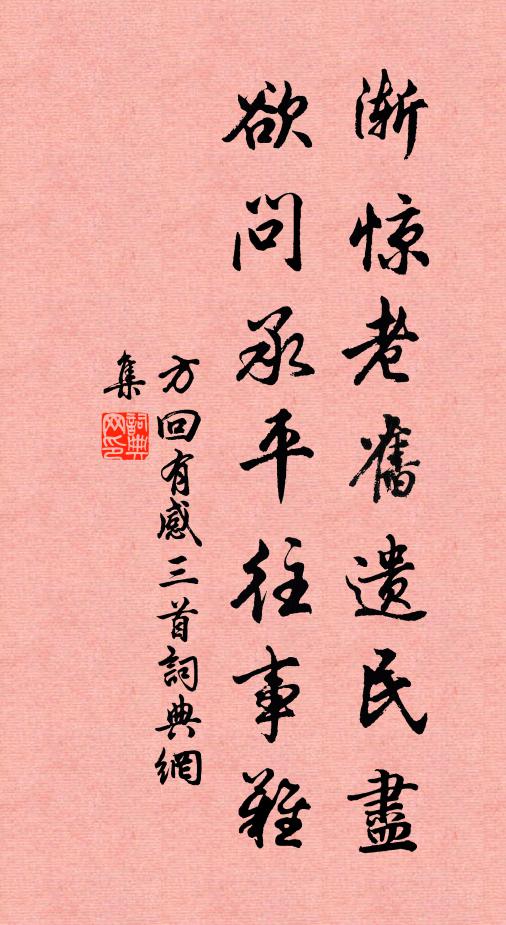 渐惊老舊遗民盡
欲问承平往事難
方回有感三首詞典網
集
詞典
网印